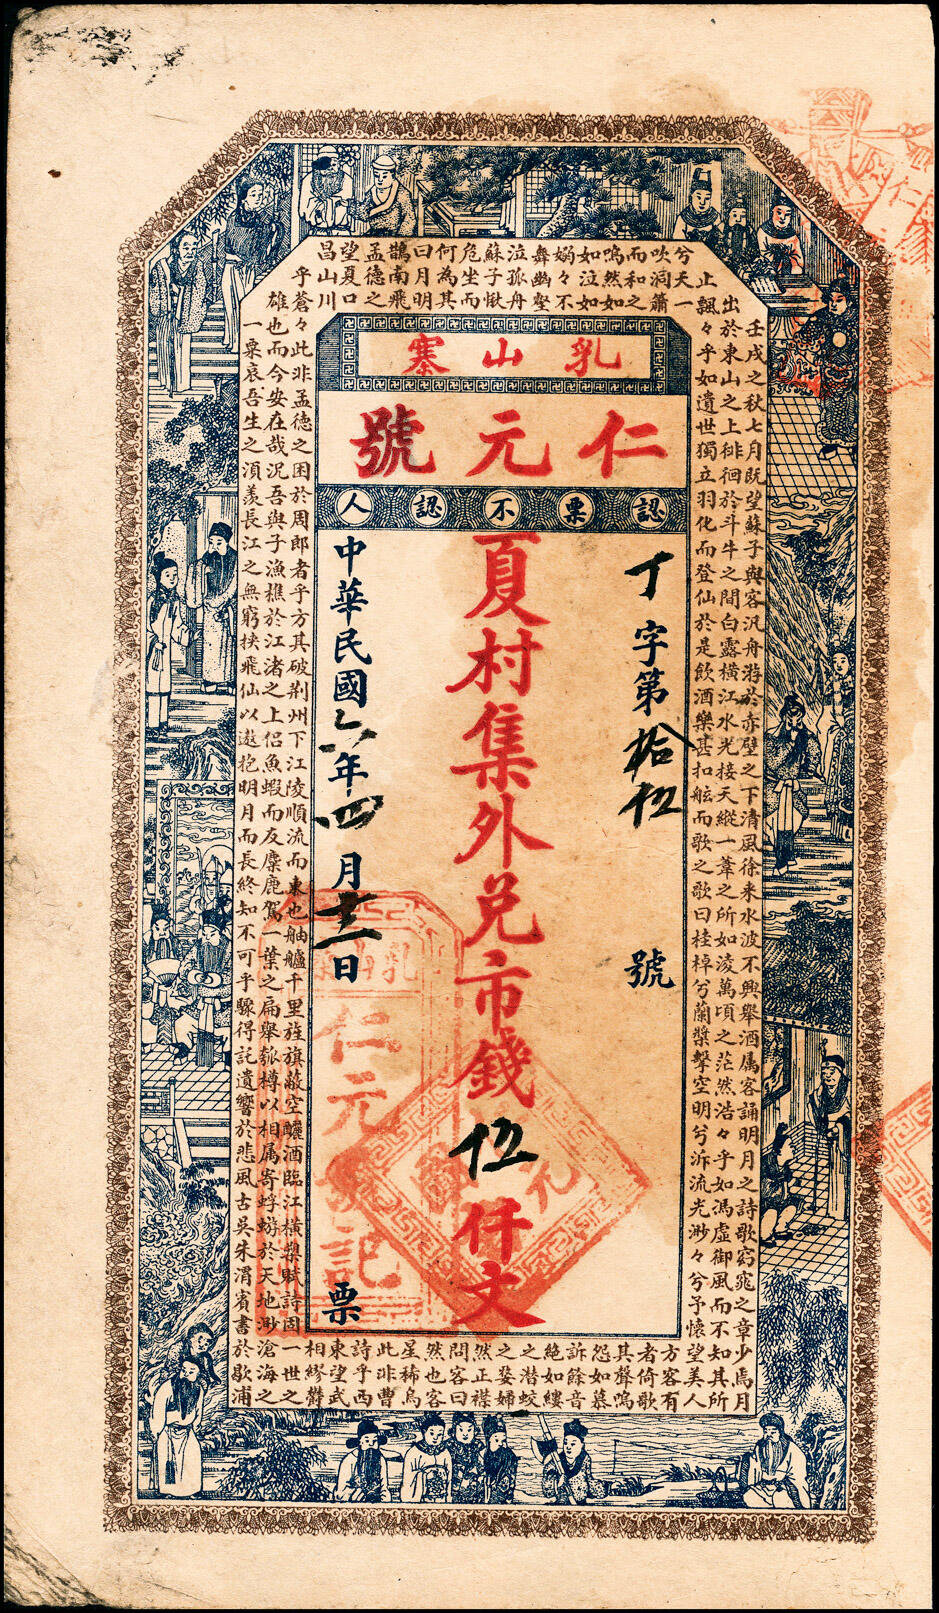 乳山寨
仁元號
認票不認人
丁字第拾伍號
夏村集外兌市錢伍仟文
中華民國六年四月十二日票
壬戌之秋七月既望蘇子與客汎舟游於赤壁之下清風徐来水波不興舉酒属客誦明月之詩歌窈窕之章少焉月
出於東山之上徘徊於斗牛之間白露橫江水光接天縱一葦之所如淩萬頃之茫然浩々乎如馮虛御風而不知其所
止飄々乎如遺世獨立羽化而登仙於是飲酒樂甚扣舷而歌之歌曰桂棹兮蘭槳擊空明兮泝流光渺々兮予懷望美人
兮天一方客有
吹洞簫者倚歌
而和之其聲嗚
嗚然如怨如慕
如泣如訴餘音
嫋々不絕如縷
舞幽壑之潜蛟
泣孤舟之嫠婦
蘇子愀然正襟
危坐而問客曰
何為其然也客
曰月明星稀烏
鵲南飛此非曹
孟德之詩乎西
望夏口東望武
昌山川相繆鬱
乎蒼々此非孟德之困於周郎者乎方其破荆州下江陵順流而東也舳艫千里旌旗蔽空釃酒臨江橫槊賦詩固一世之
雄也而今安在哉況吾與子漁樵於江渚之上侶魚蝦而友麋鹿駕一葉之扁舉匏樽以相属寄蜉蝣於天地渺滄海之
一粟哀吾生之須羨長江之無窮挟飛仙以遨抱明月而長終知不可乎驟得託遺響於悲風古吳朱渭賓書於歇浦
仁元號記